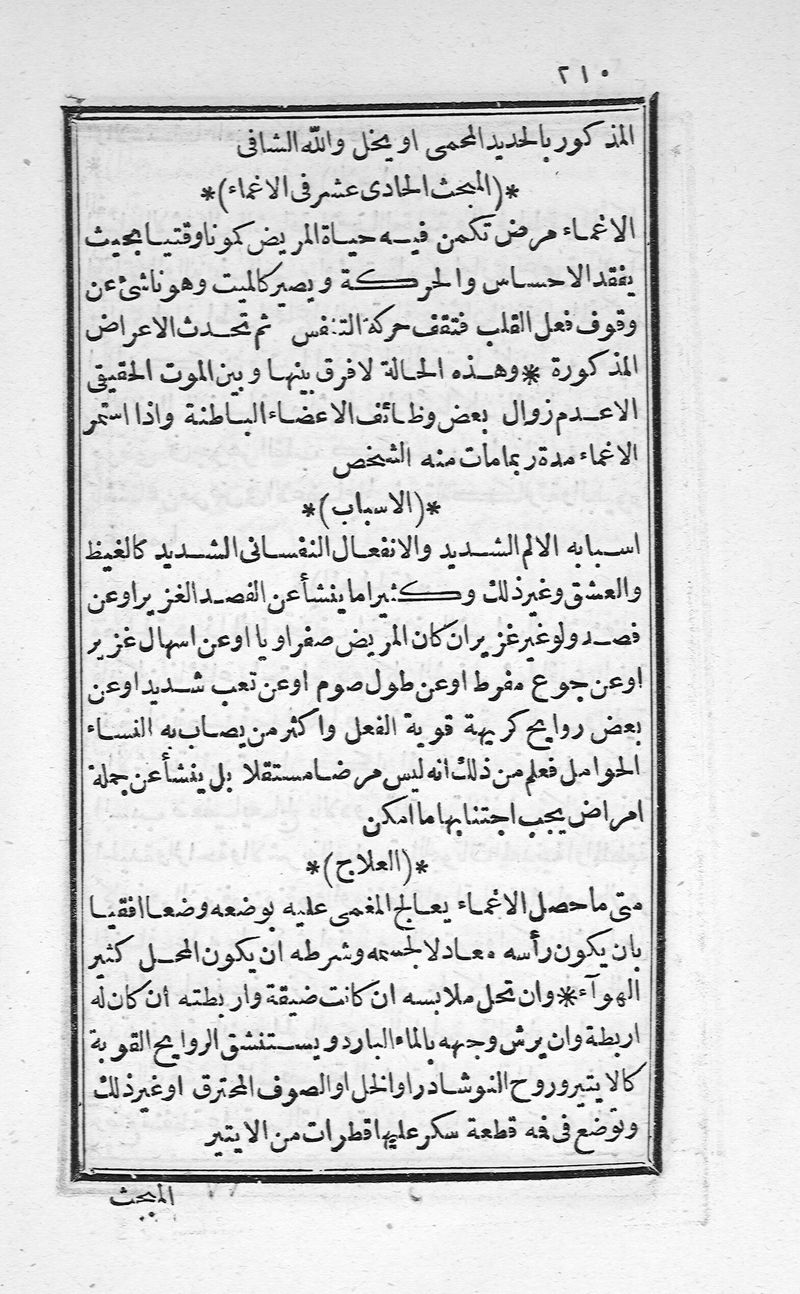 ٢١٠
المذكور بالحديد المحمى او بخل والله الشافى
*(المبحث الحادى عشر فى الاغماء)*
الاغماء مرض تكمن فيه حياة المريض كمونا وقتيا بحيث
يفقد الاحساس والحركة ويصير كالميت وهو ناشئ عن
وقوف فعل القلب فتقف حركة التنفس ثم تحدث الاعراض
المذكورة * وهذه الحالة لافرق بينها وبين الموت الحقيقى
الاعدم زوال بعض وظائف الاعضاء الباطنة واذا استمر
الاغماء مدة ربما مات منه الشخص
*(الاسباب)*
اسبابه الالم الشديد والانفعال النفسانى الشديد كالغيظ
والعشق وغير ذلك وكثيرا ما ينشأ عن الفصد الغزير او عن
فصد ولو غير غزير ان كان المريض صفراويا او عن اسهال غزير
او عن جوع مفرط او عن طول صوم او عن تعب شديد او عن
بعض روايح كريهة قوية الفعل واكثر من يصاب به النساء
الحوامل فعلم من ذلك انه ليس مرضا مستقلا بل ينشأ عن جملة
امراض يجب اجتنابها ما امكن
*(العلاج)*
متى ما حصل الاغماء يعالج المغمى عليه بوضعه وضعا افقيا
بان يكون رأسه معادلا لجسمه وشرطه ان يكون المحل كثير
الهوآء * وان تحل ملابسه ان كانت ضيقة واربطته أن كان له
اربطة وان يرش وجهه بالماء البارد ويستنشق الروايح القوية
كالايتير وروح النوشادر او الخل او الصوف المحترق او غير ذلك
وتوضع فى فمه قطعة سكر عليها قطرات من الايتير
المبحث